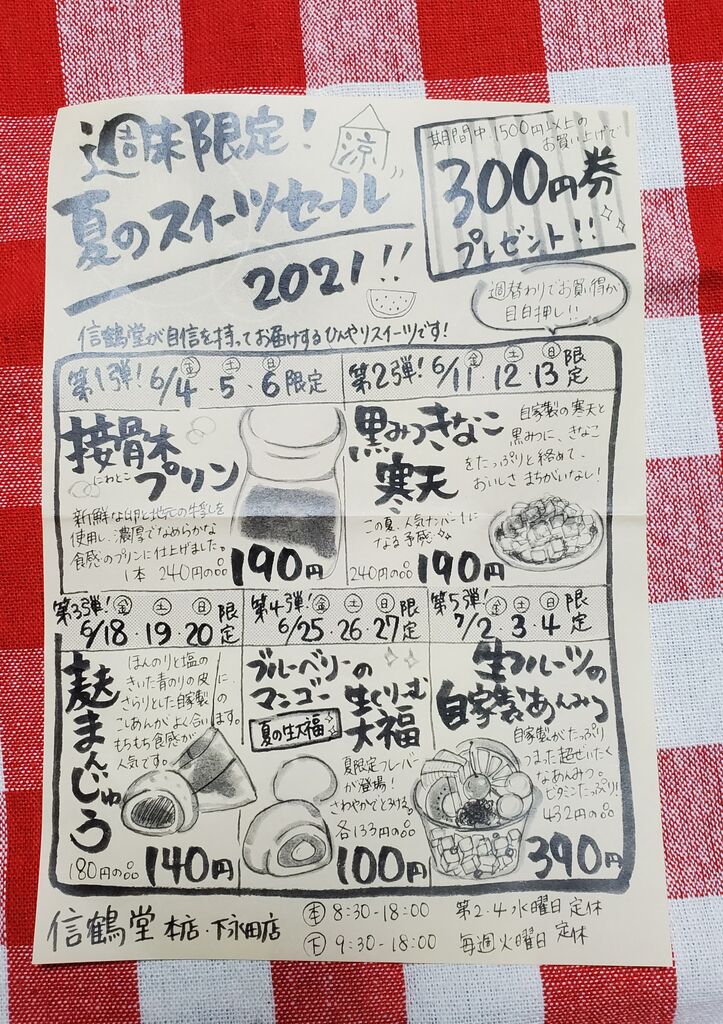 週末限定!
涼
夏のスイーツセール
2021!!
期間中1500円以上の
お買い上げで
300円券
プレゼント!!
週替わりでお買い得が
目白押し!!
信鶴堂が自信を持ってお届けするひんやりスイーツです!
第1弾! 6/4(金)・5(土)・6(日)限定
接骨木
にわとこ
プリン
新鮮な卵と地元の牛乳を
使用し、濃厚でなめらかな
食感のプリンに仕上げました。
1本 240円の品 190円
第2弾! 6/11(金)・12(土)・13(日)限定
黒みつきなこ
寒天
自家製の寒天と
黒みつに、きなこ
をたっぷりと絡めて、
おいしさ まちがいなし!
この夏、人気ナンバー1に
なる予感
240円の品 190円
第3弾! 6/18(金)・19(土)・20(日)限定
麩まんじゅう
ほんのりと塩の
きいた青のりの皮に
さらりとした自家製の
こしあんがよく合います。
もちもち食感が
人気です。
180円の品 140円
第4弾! 6/25(金)・26(土)・27(日)限定
ブルーベリーの
マンゴー
生くりーむ
大福
夏の生大福
夏限定フレーバー
が登場!
さわやかでとろける。
各133円の品
100円
第5弾! 7/2(金)・3(土)・4(日)限定
生フルーツの
自家製あんみつ
自家製がたっぷり
つまった超ぜいたく
なあんみつ。
ビタミンたっぷり!
432円の品
390円
信鶴堂 本店・下永田店
(本) 8:30-18:00 第2.4水曜日定休
(下) 9:30-18:00 毎週火曜日定休